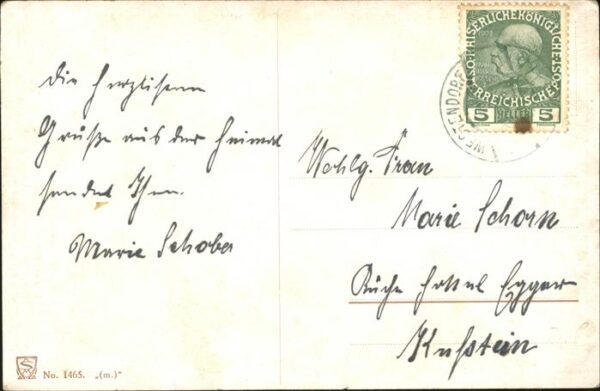 die herzlichsten
Grüße aus der Heimat
sendet Ihnen.
Marie Schober
Wohlg. Frau
Marie Schorn
Küche Hotel Egger
Kufstein
KAISERLICHEKÖNIGLICHEÖSTERREICHISCHEPOST
5 HELLER 5
WESTENDORF
No. 1465. „(m.)“